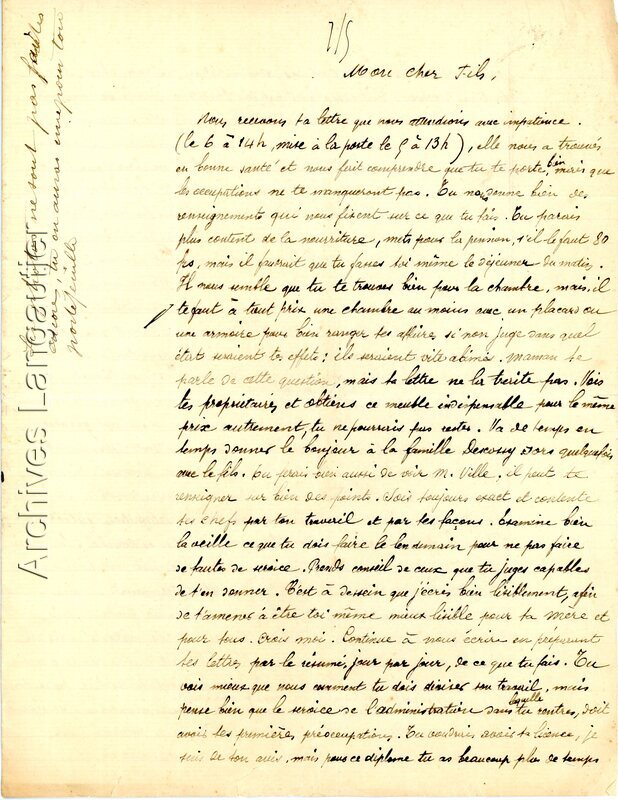 7/5
Mon cher Fils,
Nous recevons ta lettre que nous attendions avec impatience.
(le 6 à 14h, mise à la poste le 5 à 13h), elle nous a trouvés
en bonne santé et nous fait comprendre que tu te porte bien, mais que
les occupations ne te manqueront pas. Tu nous donne bien des
renseignements qui nous fixent sur ce que tu fais. Tu parais
plus content de la nourriture, mets pour la pension, s'il le faut 80
frs, mais il faudrait que tu fasses toi même le déjeuner du matin.
Il nous semble que tu te trouves bien pour la chambre, mais, il
te faut à tout prix une chambre au moins avec un placard ou
une armoire pour bien ranger tes affaires, si non juge dans quel
état seraient tes effets: ils seraient vite abimés. Maman te
parle de cette question, mais ta lettre ne la traite pas. Vois
tes propriétaires et obtiens ce meuble indispensable pour le même
prix autrement, tu ne pourrais pas rester. Va de temps en
temps donner le bonjour à la famille et sors quelquefois
avec le fils. Tu ferais bien aussi de voir M. Ville. il peut te
renseigner sur bien des points. Sois toujours exact et contente
tes chefs par ton travail et par tes façons. Examine bien
la veille ce que tu dois faire le lendemain pour ne pas faire
de fautes de service. Prends conseil de ceux que tu juges capables
de t'en donner. C'est à dessein que j'écris bien lisiblement, afin
de t'amener à être toi même mieux lisible pour ta Mère et
pour tous. Crois moi. Continue à nous écrire en préparant
tes lettres par le résumé, jour par jour, de ce que tu fais. Tu
vois mieux que nous comment tu dois diviser ton travail, mais
pense bien que le service de l'administration dans laquelle tu rentres, doit
avoir tes premières préoccupations. Tu voudrais avoir ta licence, je
suis de ton avis, mais pour ce diplome tu as beaucoup plus de temps
ne sont pas faites
encore, tu en auras une pour ton
portefeuille
Archives Langautier